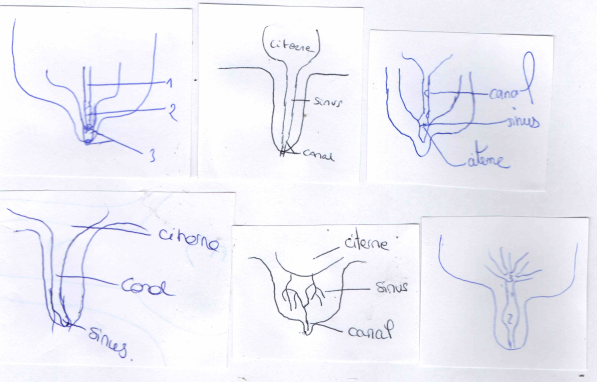 1
2
3
citerne
sinus
canal
canal
sinus
citerne
citerne
canal
sinus.
citerne
sinus
canal
2